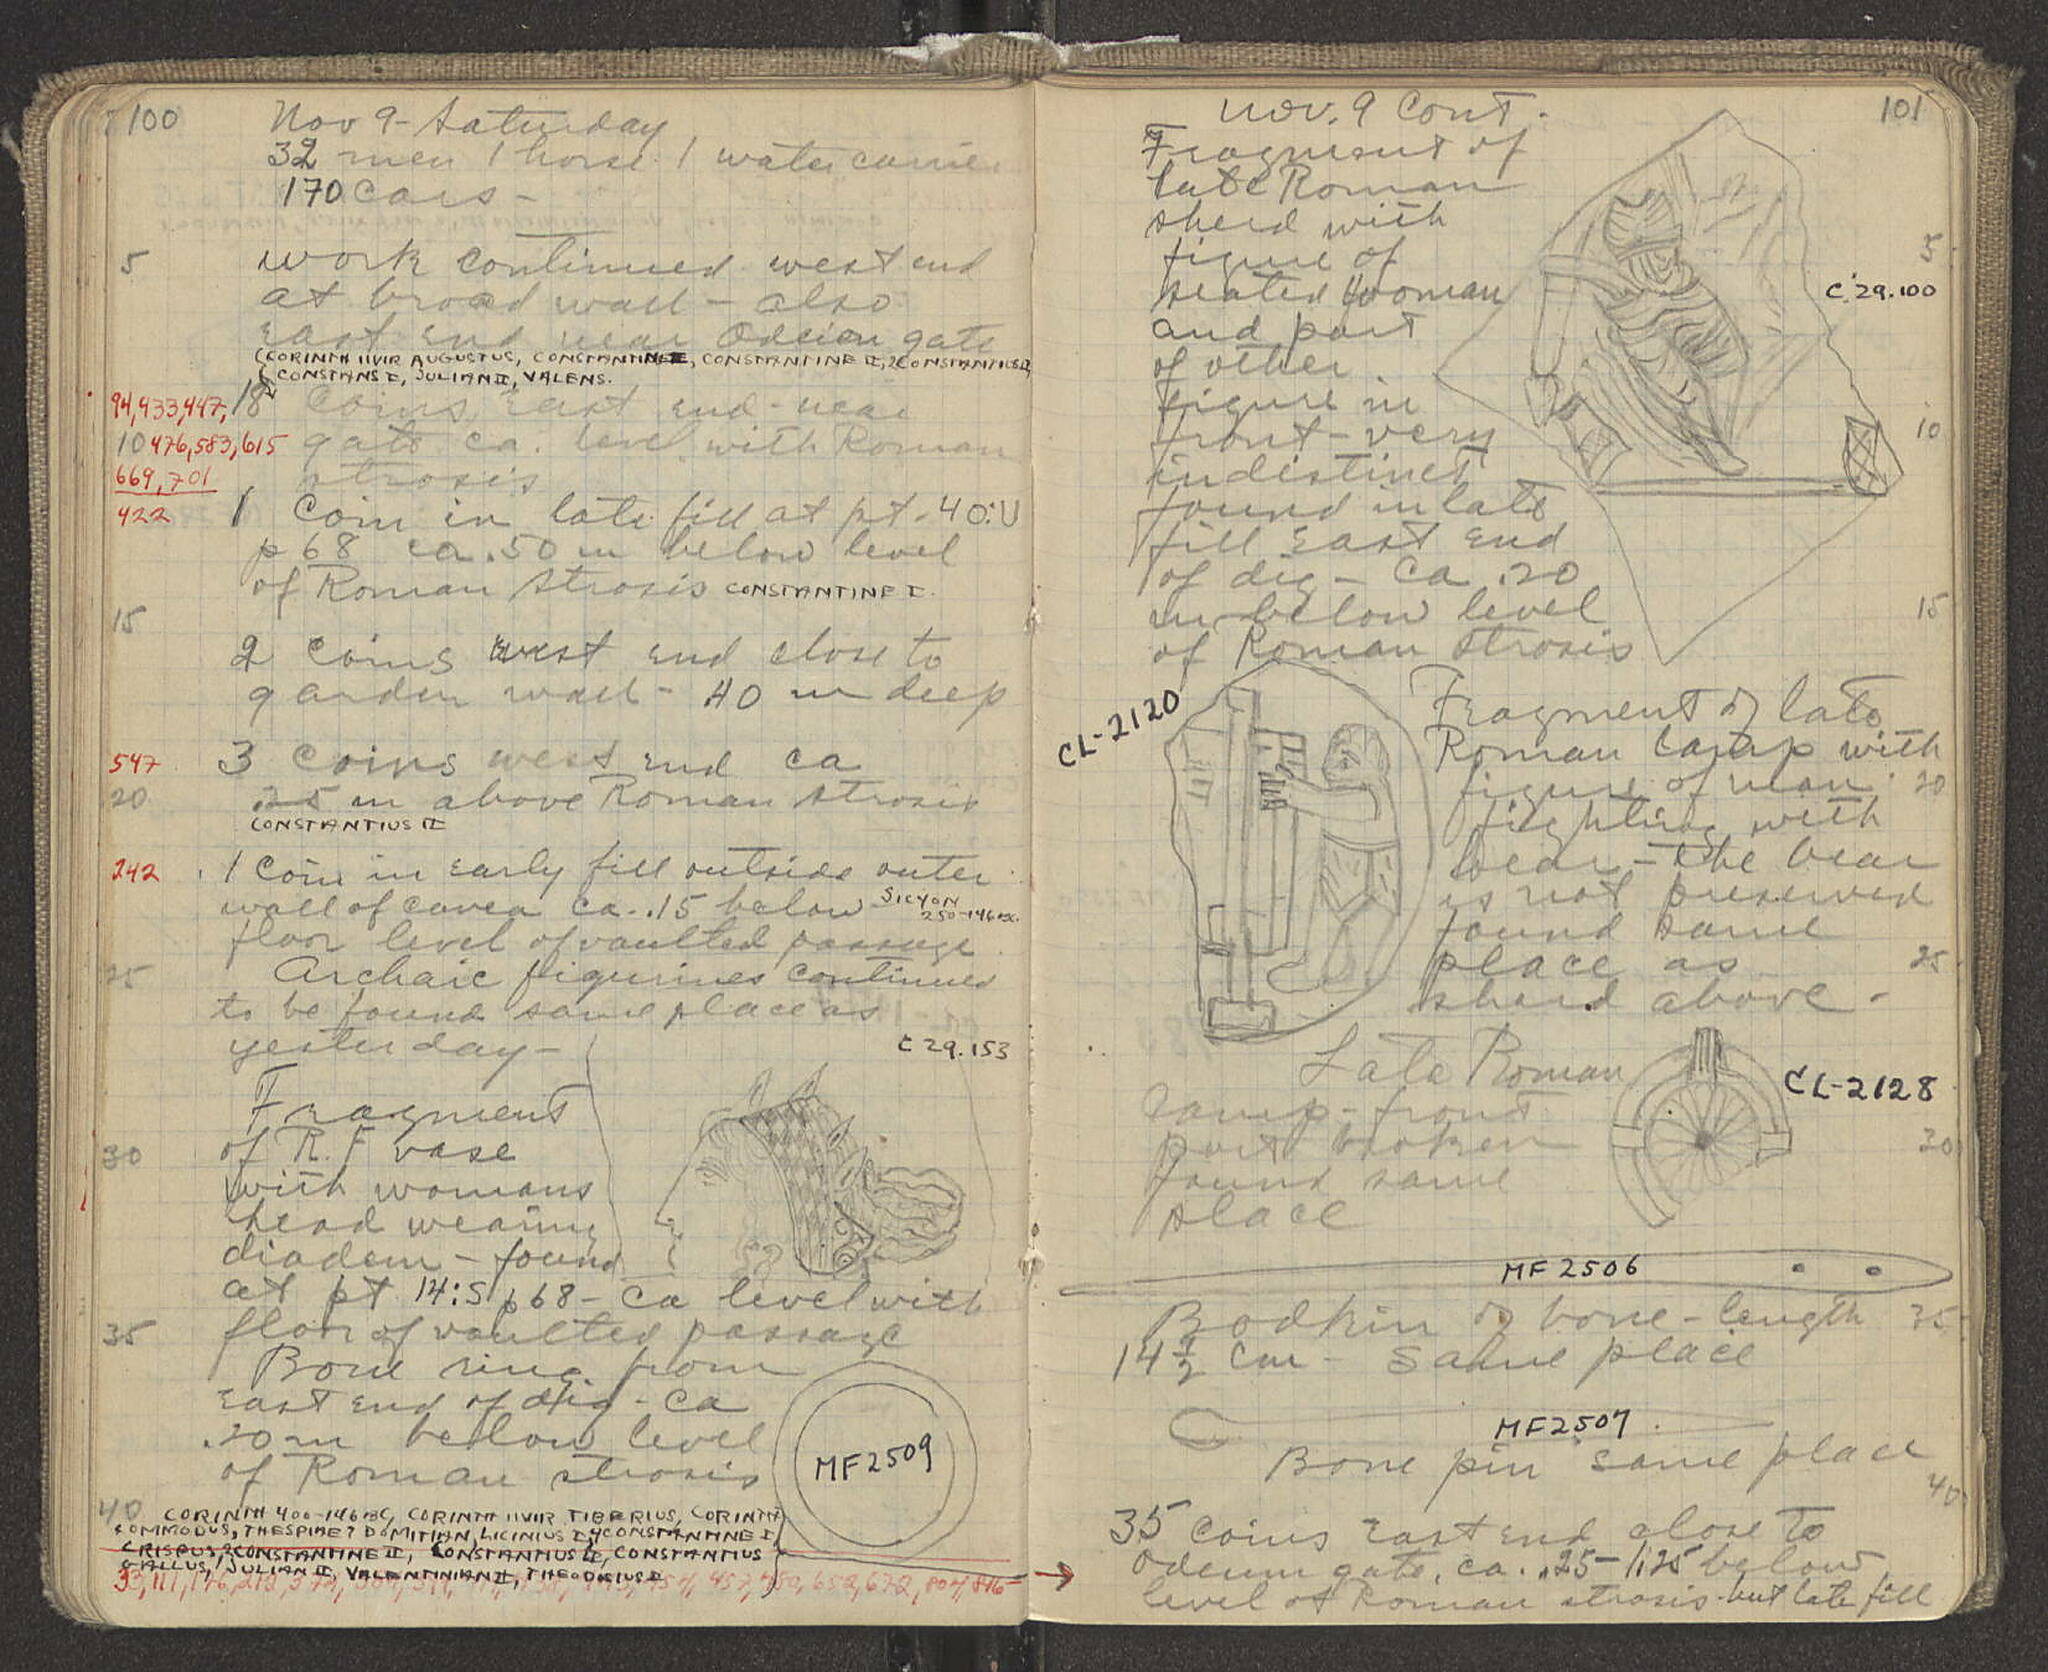 100
Nov 9 - Saturday
32 men 1 horse 1 water carrier
170 cars -
5
work continued west end
at broad wall - also
east end near Odeion gate
(CORINTH IIVIR AUGUSTUS, CONSTANTINE, CONSTANTINE II, 2 CONSTANTIUS II,
CONSTANS I, JULIAN II, VALENS.
94,433,447, 18 coins east end - near
10 476,583,615 gate ca. level with Roman
669,701 strosis
422 1 coin in late fill at pt - 40:U
p 68 ca .50 m below level
of Roman strosis CONSTANTINE I.
15
2 coins west end close to
garden wall - 40 m deep
547 3 coins west end ca
20 .25 m above Roman strosis
CONSTANTIUS II
242 1 coin in early fill outside outer
wall of cavea ca. .15 below SICYON 250-146 BC.
floor level of vaulted passage
25 Archaic figurines continued
to be found same place as
yesterday -
C 29.153
Fragment
30 of R.F vase
with womans
head wearing
diadem - found
at pt 14:S p 68 - ca level with
35 floor of vaulted passage
Bone ring from
east end of dig - ca
.20 m below level
of Roman strosis
MF2509
40 CORINTH 400-146 BC, CORINTH IIVIR TIBERIUS, CORINTH
COMMODUS, THESPIAE? DOMITIAN, LICINIUS I, 4 CONSTANTINE I,
CRISPUS, 2 CONSTANTINE II, CONSTANTIUS II, CONSTANTIUS
GALLUS, JULIAN II, VALENTINIAN II, THEODOSIUS I
33, 111, 457, 652, 672, 804, 816
101
Nov. 9 cont.
Fragment of
late Roman
sherd with
figure of
5
seated woman
C 29.100
and part
of other
figure in
10
front - very
indistinct
found in late
fill east end
of dig - ca .20
15
m below level
of Roman strosis
CL-2120
Fragment of late
Roman lamp with
figure of man
20
fighting with
bear - the bear
is not preserved
found same
place as
25
sherd above -
Late Roman
CL-2128
lamp - front
part broken
30
found same
place
MF 2506
Bodkin of bone - length
35
14 1/2 cm - same place
MF2507
Bone pin same place
40
35 coins east end close to
Odeum gate, ca. .25 - 1.25 below
level of Roman strosis - but late fill